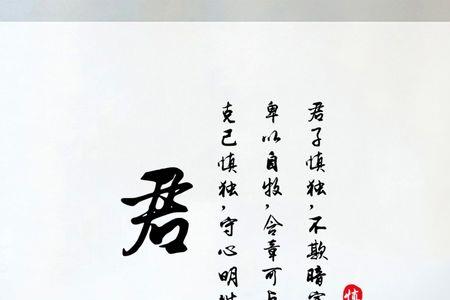 君子慎独,不欺暗
卑以自牧,含章可
克己慎独,守心明
君
慎